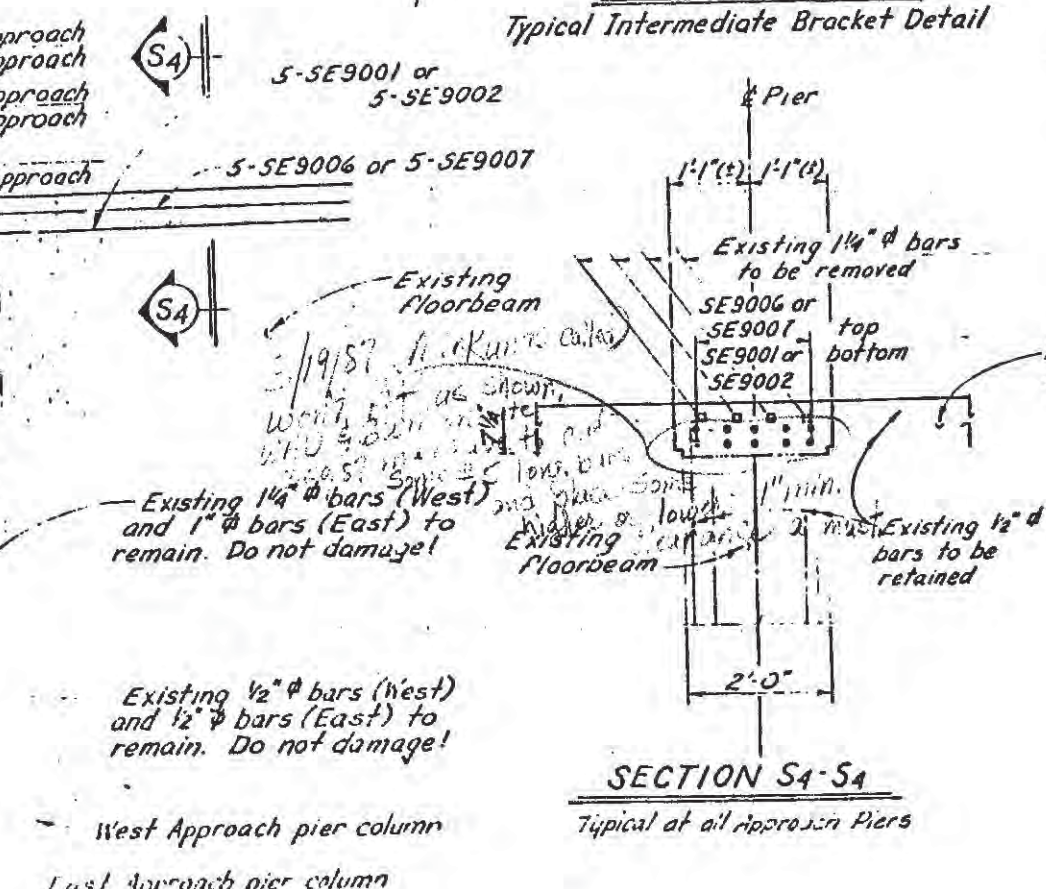 Typical Intermediate Bracket Detail
pproach
pproach
pproach
pproach
pproach
S4
5-SE9001 or
5-SE9002
5-SE9006 or 5-SE9007
S4
℄ Pier
1'-1"(±) 1'-1"(±)
Existing 1¼" ϕ bars
to be removed
SE9006 or
SE9007 top
SE9001 or bottom
SE9002
Existing
floorbeam
called
won't as shown,
and
one
higher or lower
7¼"
1" min.
Existing 1¼" ϕ bars (West)
and 1" ϕ bars (East) to
remain. Do not damage!
Existing
floorbeam
Existing ½" ϕ
bars to be
retained
2'-0"
Existing ½" ϕ bars (West)
and ½" ϕ bars (East) to
remain. Do not damage!
SECTION S4-S4
Typical at all Approach Piers
West Approach pier column
East Approach pier column